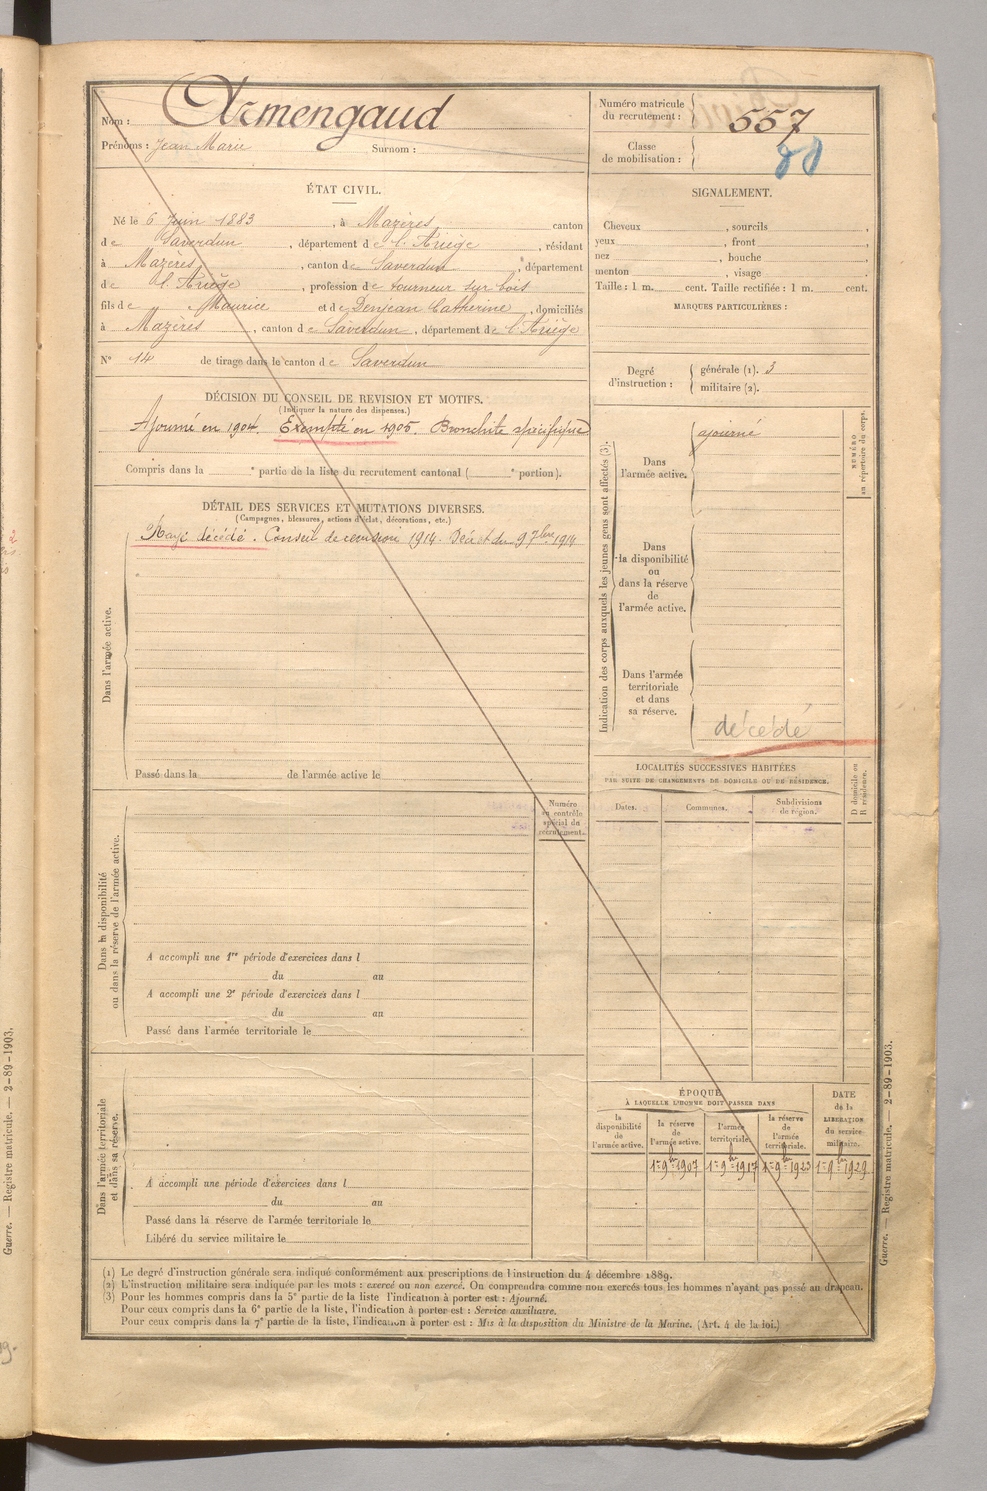 Nom : Armengaud
Prénoms : Jean Marie Surnom :
Numéro matricule du recrutement : 557
Classe de mobilisation :
ÉTAT CIVIL.
Né le 6 Juin 1883, à Mazères canton
de Saverdun, département de l'Ariège, résidant
à Mazères, canton de Saverdun, département
de l'Ariège, profession de tourneur sur bois
fils de Maurice et de Denjean Catherine, domiciliés
à Mazères, canton de Saverdun, département de l'Ariège
N° 14 de tirage dans le canton de Saverdun
SIGNALEMENT.
Cheveux , sourcils ,
yeux , front ,
nez , bouche ,
menton , visage
Taille : 1 m. cent. Taille rectifiée : 1 m. cent.
MARQUES PARTICULIÈRES :
Degré d'instruction :
générale (1). 3
militaire (2).
DÉCISION DU CONSEIL DE REVISION ET MOTIFS.
(Indiquer la nature des dispenses.)
Ajourné en 1904. Exempté en 1905. Bronchite spécifique
Compris dans la e partie de la liste du recrutement cantonal ( e portion).
DÉTAIL DES SERVICES ET MUTATIONS DIVERSES.
(Campagnes, blessures, actions d'éclat, décorations, etc.)
Rayé décédé. Conseil de revision 1914. Décret du 9 7bre 1914
Dans l'armée active.
Passé dans la de l'armée active le
Indication des corps auxquels les jeunes gens sont affectés (3).
Dans l'armée active.
ajourné
NUMÉRO au répertoire du corps.
Dans la disponibilité ou dans la réserve de l'armée active.
Dans l'armée territoriale et dans sa réserve.
décédé
LOCALITÉS SUCCESSIVES HABITÉES
PAR SUITE DE CHANGEMENTS DE DOMICILE OU DE RÉSIDENCE.
Dates.
Communes.
Subdivisions de région.
D domicile ou R résidence.
Numéro au contrôle spécial du recrutement.
Dans la disponibilité ou dans la réserve de l'armée active.
A accompli une 1re période d'exercices dans l
du au
A accompli une 2e période d'exercices dans l
du au
Passé dans l'armée territoriale le
Dans l'armée territoriale et dans sa réserve.
A accompli une période d'exercices dans l
du au
Passé dans la réserve de l'armée territoriale le
Libéré du service militaire le
ÉPOQUE
À LAQUELLE L'HOMME DOIT PASSER DANS
la disponibilité de l'armée active.
la réserve de l'armée active.
l'armée territoriale.
la réserve de l'armée territoriale.
DATE de la LIBÉRATION du service militaire.
1er 9bre 1907
1er 9bre 1917
1er 9bre 1923
1er 9bre 1929
(1) Le degré d'instruction générale sera indiqué conformément aux prescriptions de l'instruction du 4 décembre 1889.
(2) L'instruction militaire sera indiquée par les mots : exercé ou non exercé. On comprendra comme non exercés tous les hommes n'ayant pas passé au drapeau.
(3) Pour les hommes compris dans la 5e partie de la liste l'indication à porter est : Ajourné.
Pour ceux compris dans la 6e partie de la liste, l'indication à porter est : Service auxiliaire.
Pour ceux compris dans la 7e partie de la liste, l'indication à porter est : Mis à la disposition du Ministre de la Marine. (Art. 4 de la loi.)
Guerre. — Registre matricule. — 2-89-1903.
Guerre. — Registre matricule. — 2-89-1903.